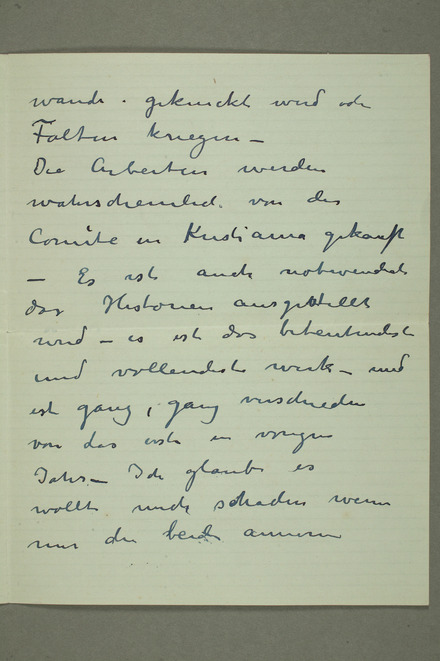 wand. geknickt wird oder
Falten kriegen –
Die Arbeiten werden
wahrscheinlich von der
Comite in Kristiania gekauft
– Es ist auch notwendich
das Historien ausgestellt
wird – es ist das bedeutendste
und vollendeste werk – und
ist ganz, ganz verschieden
von das erste in vorigen
Jahr – Ich glaube es
wollte mich schaden wenn
nur die beide anneren